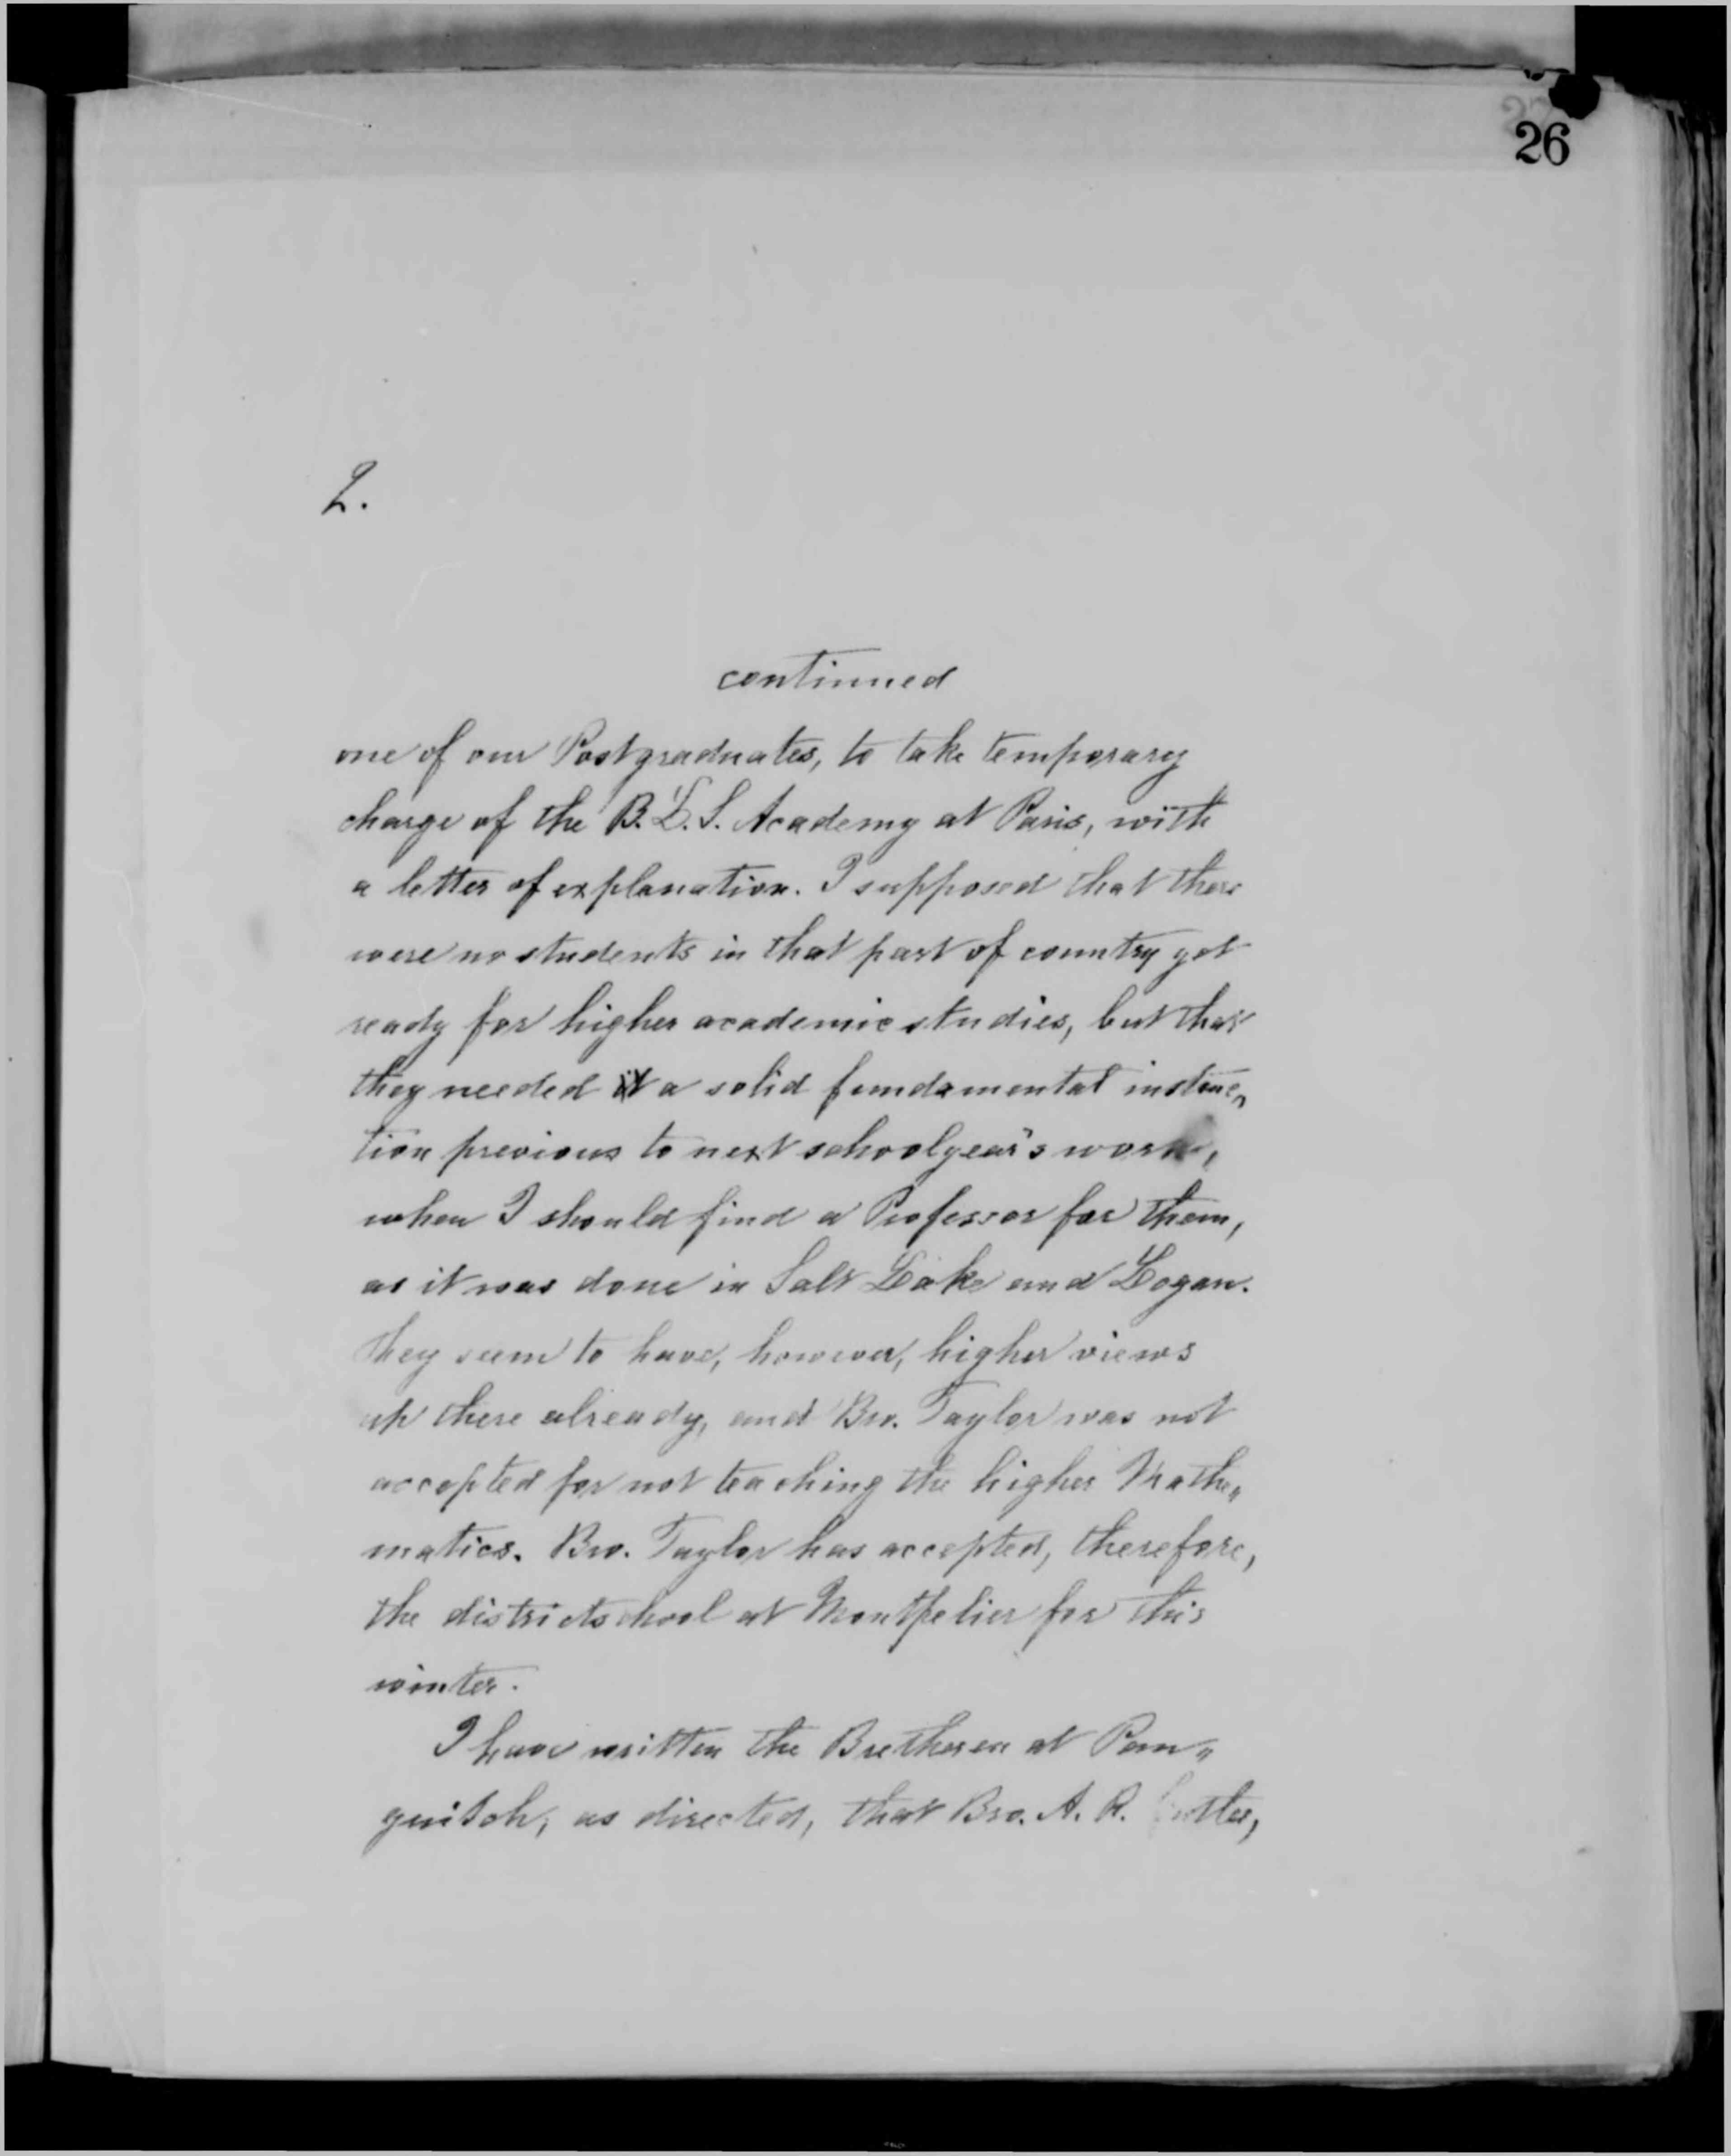 26
2.
continued
one of our Postgraduates, to take temporary
charge of the B. L. S. Academy at Paris, with
a letter of explanation. I supposed that there
were no students in that part of country yet
ready for higher academic studies, but that
they needed it a solid fundamental instruc„
tion previous to next schoolyear's work,
when I should find a Professor for them,
as it was done in Salt Lake and Logan.
They seem to have, however, higher views
up there already, and Bro. Taylor was not
accepted for not teaching the higher Mathe„
matics. Bro. Taylor has accepted, therefore,
the districtschool at Montpelier for this
winter.
I have written the Bretheren at Pan„
guitch, as directed, that Bro. A. R.